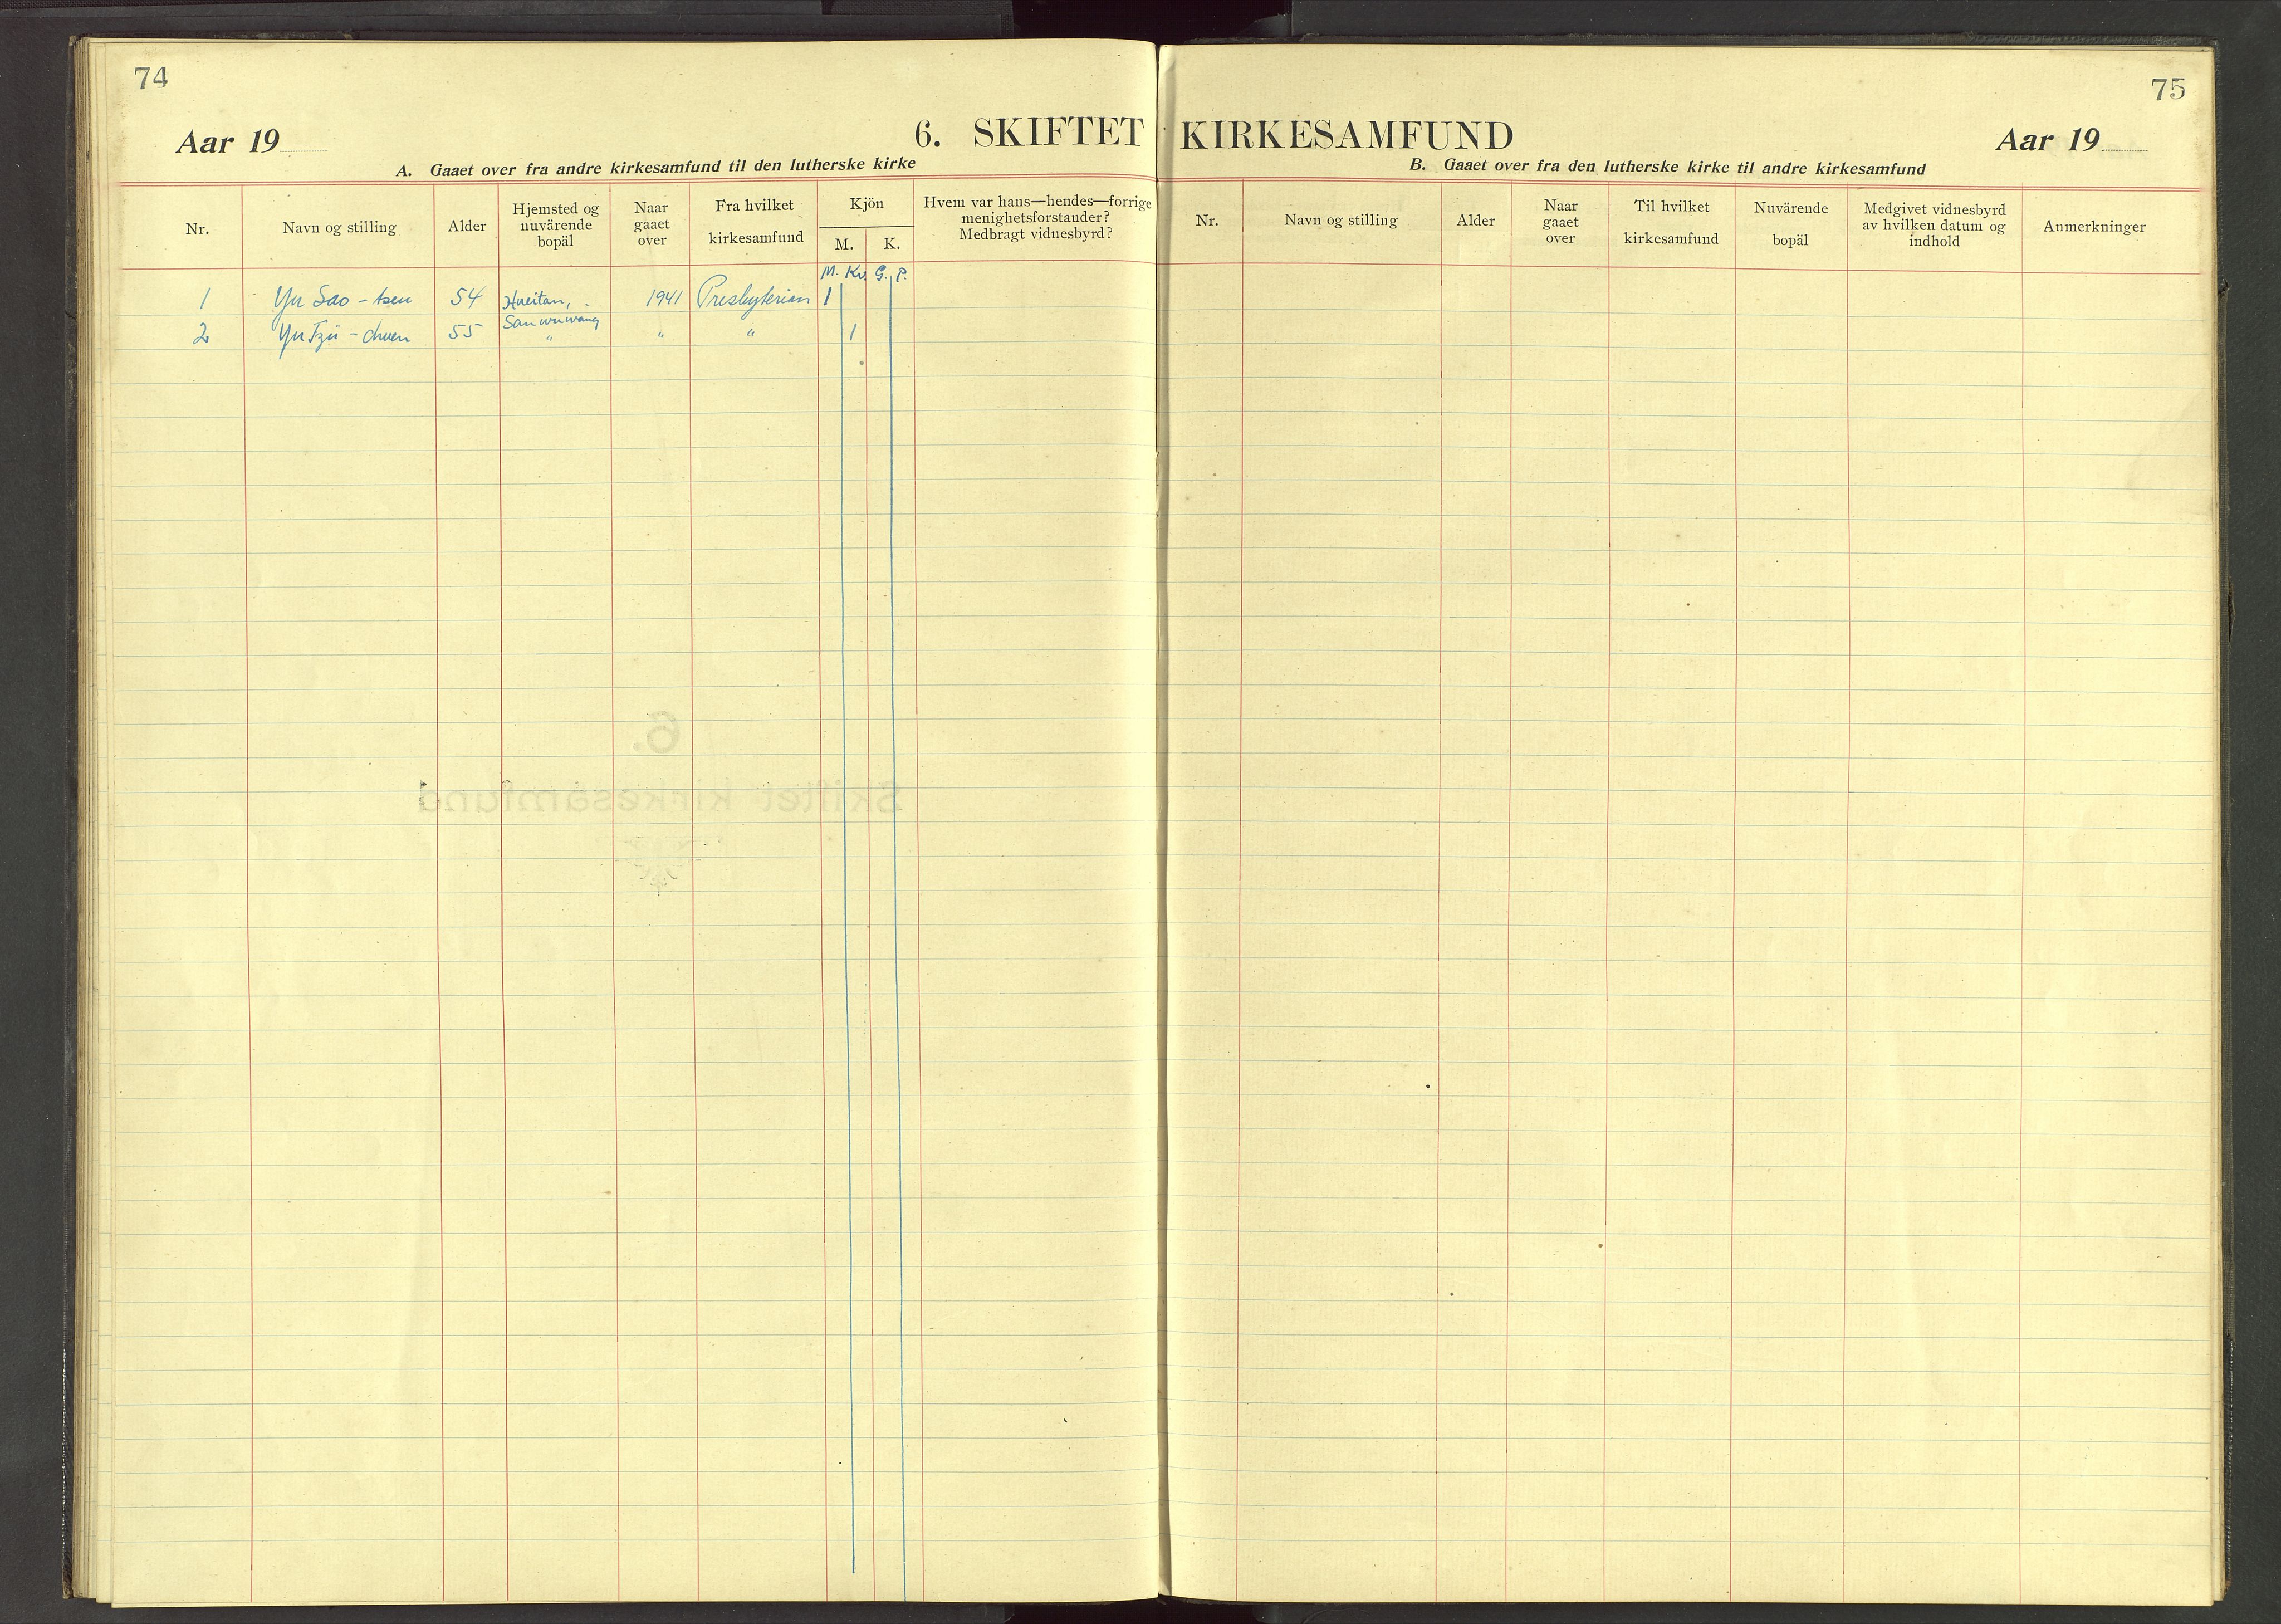 74
Aar 19
6. SKIFTET
A. Gaaet over fra andre kirkesamfund til den lutherske kirke
Nr.
Navn og stilling
Alder
Hjemsted og
nuvärende
bopäl
Naar
gaaet
over
Fra hvilket
kirkesamfund
Kjön
M.
K.
Hvem var hans—hendes—forrige
menighetsforstander?
Medbragt vidnesbyrd?
M. Kv. G. P.
1 Yu Sao-tsen 54 Hueitan, 1941 Presbyterian 1
Sanwuwang
2 Yu Tzü-chuen 55 " " " 1
75
KIRKESAMFUND
Aar 19
B. Gaaet over fra den lutherske kirke til andre kirkesamfund
Nr.
Navn og stilling
Alder
Naar
gaaet
over
Til hvilket
kirkesamfund
Nuvärende
bopäl
Medgivet vidnesbyrd
av hvilken datum og
indhold
Anmerkninger
6.
Skiftet kirkesamfund